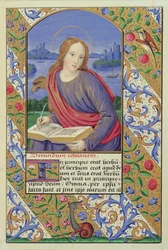 Secundum iohannem.
In principio erat verbū
et verbum erat apud de
um et deus erat verbū
hoc erat in principio
apud deum. Omnia per ipsū
facta sunt et sine ipso factum est